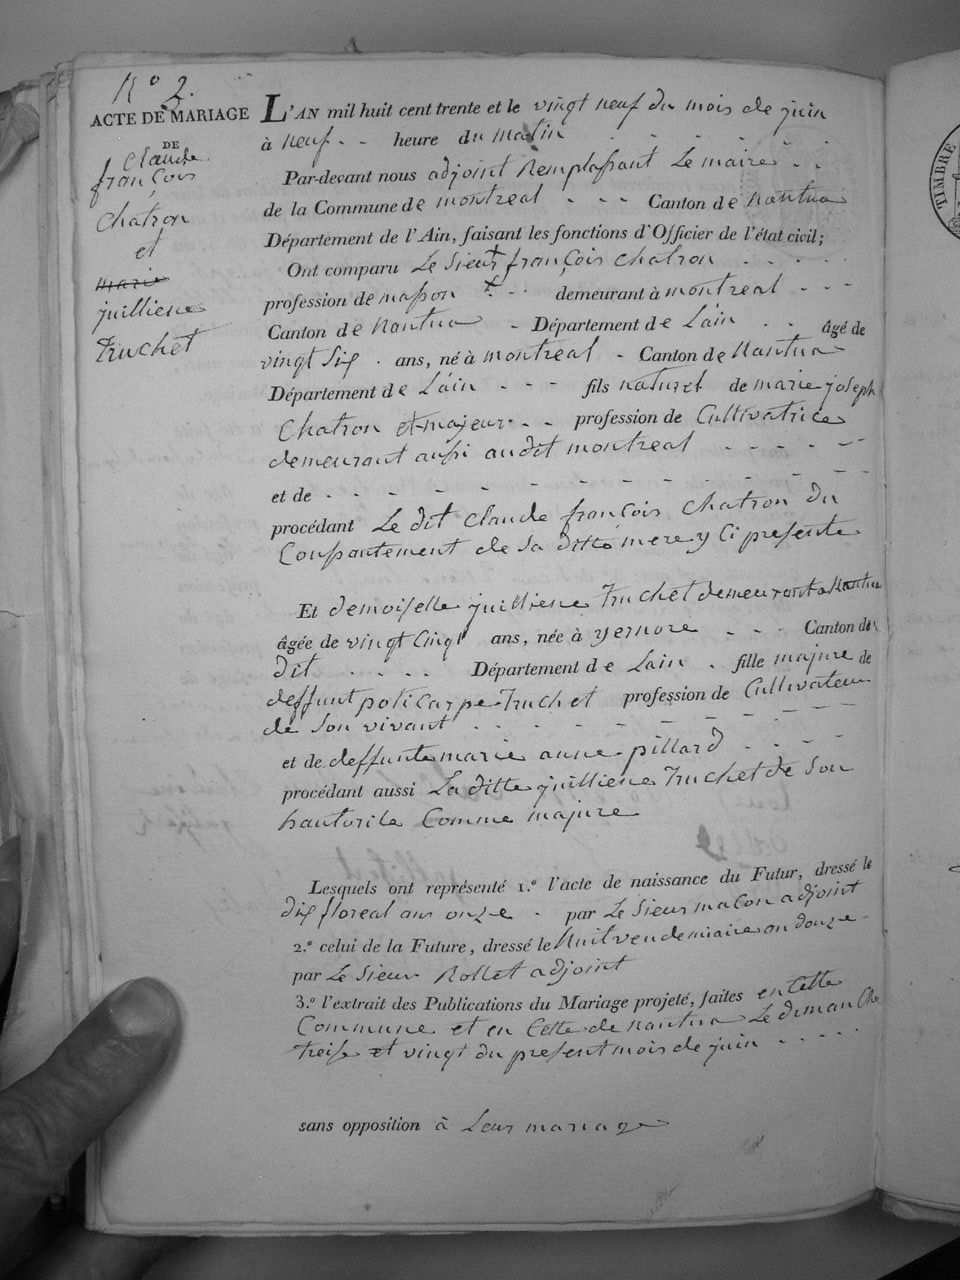 N° 2.
ACTE DE MARIAGE
DE
Claude
françois
Chatron
et
marie
juilliene
Truchet
L'AN mil huit cent trente et le vingt neuf du mois de juin
à neuf - - heure du matin
Par-devant nous adjoint Remplassant Le maire - -
de la Commune de montreal - - - Canton de Nantua
Département de l'Ain, faisant les fonctions d'Officier de l'état civil;
Ont comparu Le Sieur françois Chatron - - - - -
profession de masson - - demeurant à montreal - - -
Canton de Nantua - Département de Lain - - âgé de
vingt Six - ans, né à montreal - Canton de Nantua
Département de Lain - - - fils naturel de marie joseph
Chatron et majeur - - profession de Cultivatrice
demeurant aussi audit montreal - - - - - -
et de - - - - - - - - - - - - - -
procédant Le dit Claude françois Chatron du
Conssantement de Sa ditte mere y Ci presente
Et demoiselle juilliene Truchet demeurant a Nantua
âgée de vingt Cinq ans, née à yernore - - - Canton du
dit - - - - Département de Lain - fille majure de
deffunt policarpe Truchet profession de Cultivateur
de Son vivant - - - - - - - - - - -
et de deffunte marie anne pillard - - - -
procédant aussi La ditte juilliene Truchet de Son
hautorite Comme majure
Lesquels ont représenté 1.° l'acte de naissance du Futur, dressé le
dix floreal an onze - par Le Sieur macon adjoint
2.° celui de la Future, dressé le huit vendemiaire an douze -
par Le Sieur Rollet adjoint
3.° l'extrait des Publications du Mariage projeté, faites en Cette
Commune et en Celle de Nantua Le dimanche
treise et vingt du present mois de juin - - - - -
sans opposition à Leur mariage
TIMBRE